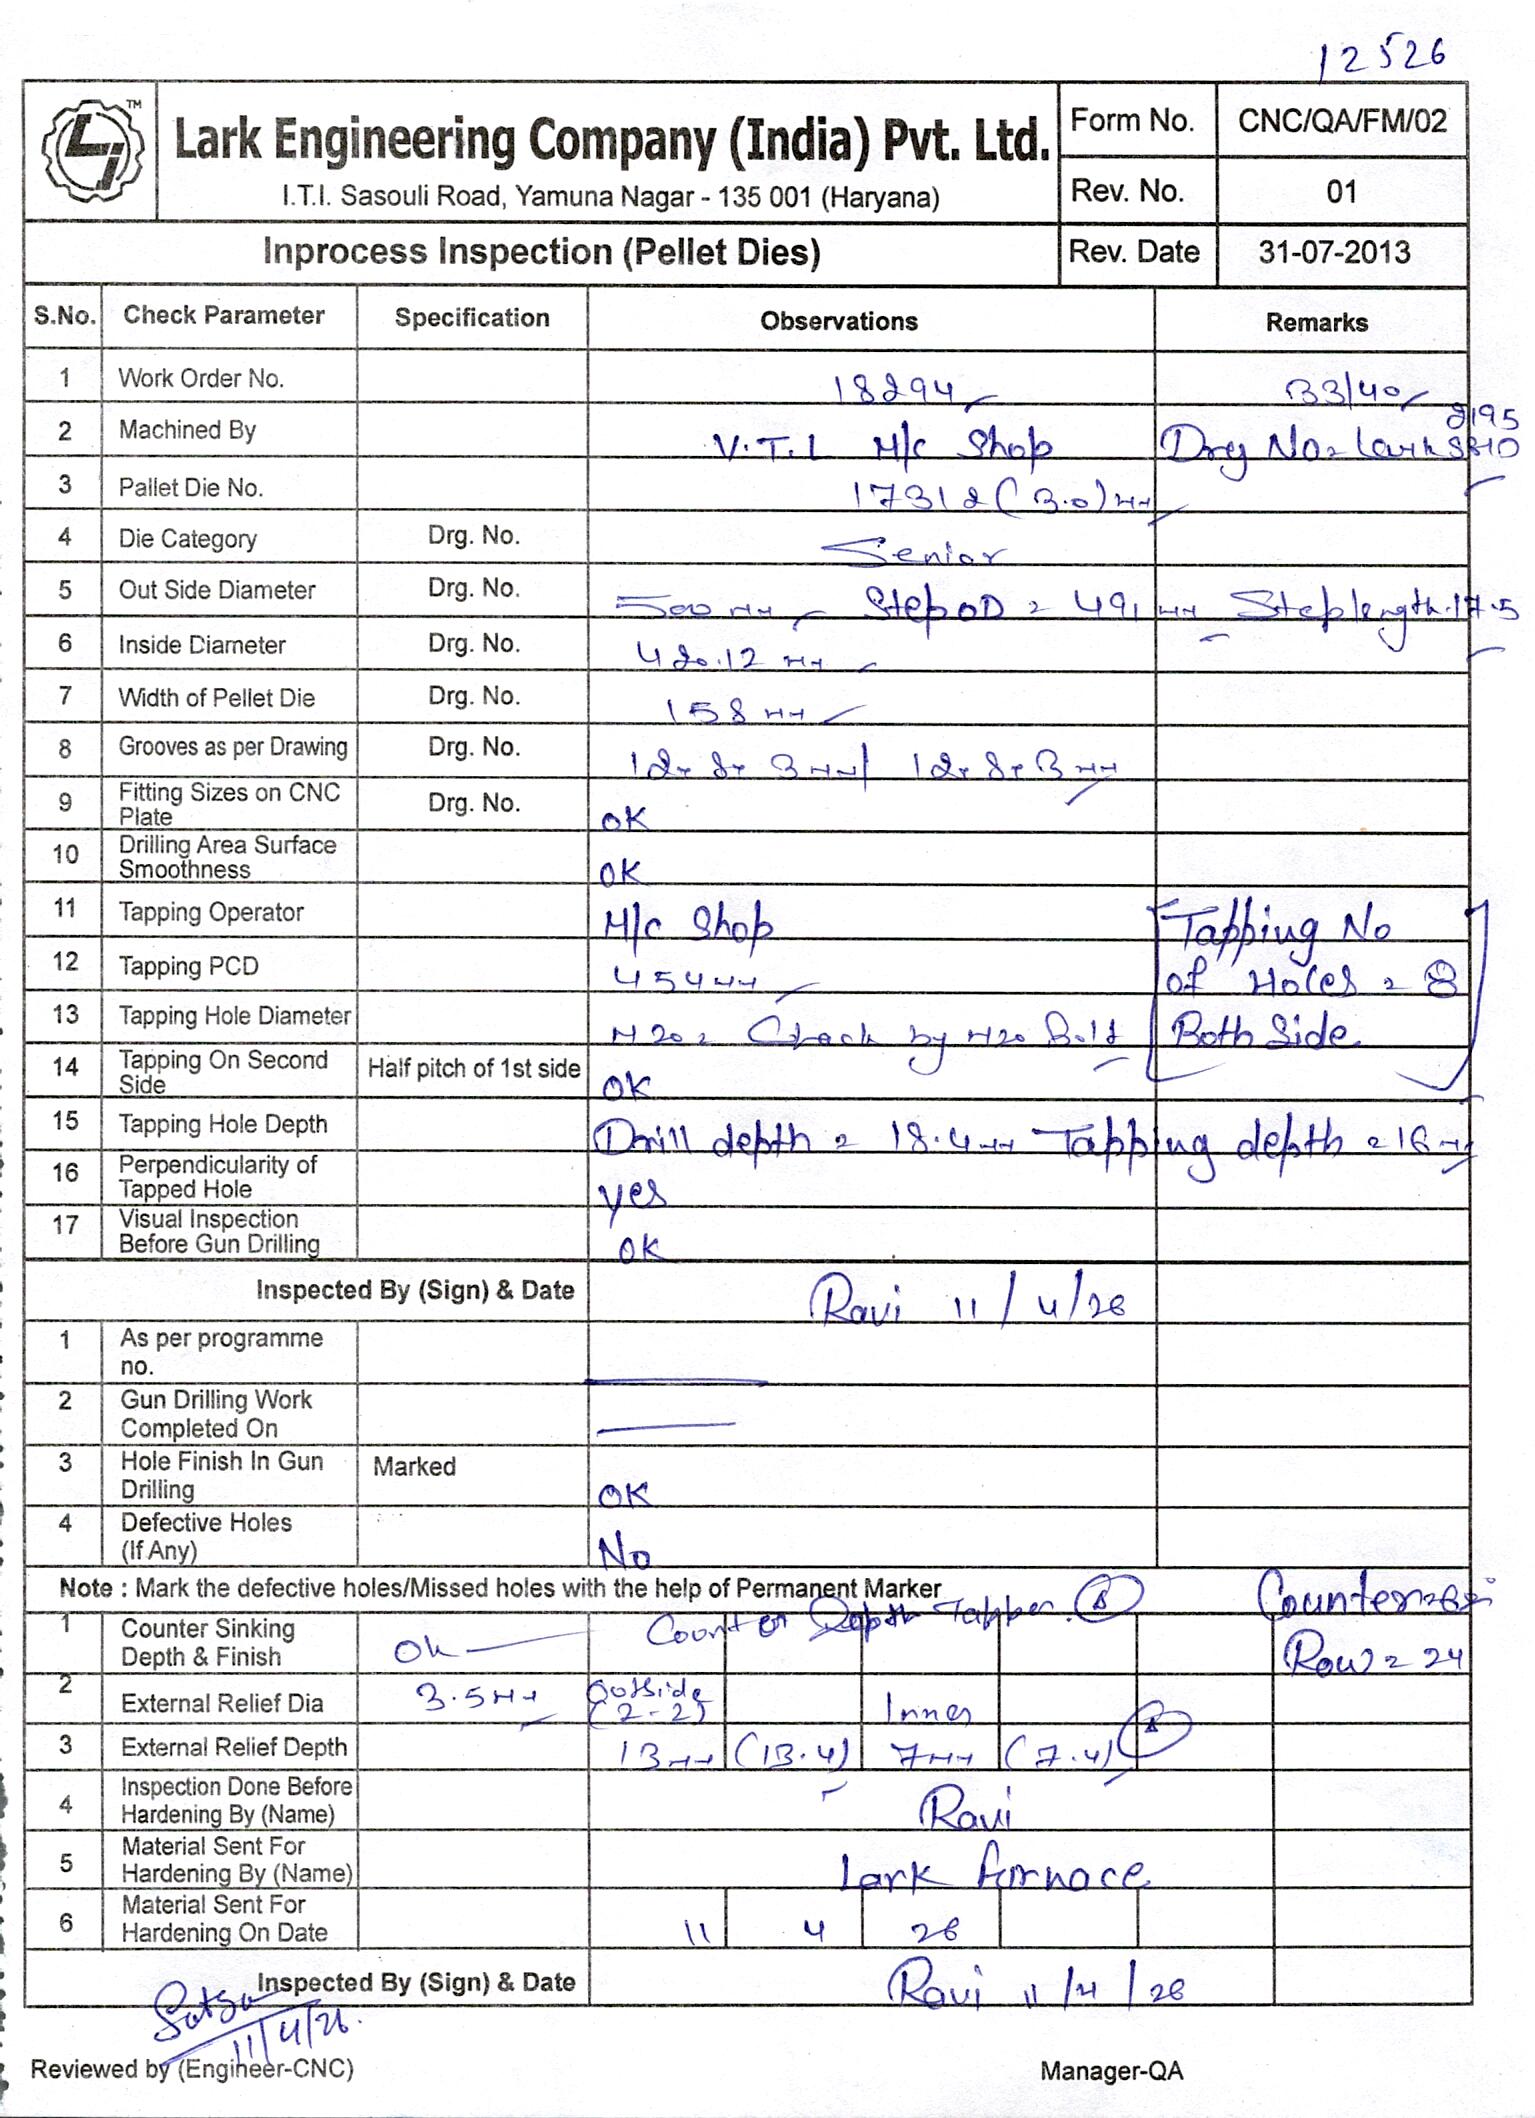 12526
TM
Lark Engineering Company (India) Pvt. Ltd.
I.T.I. Sasouli Road, Yamuna Nagar - 135 001 (Haryana)
Form No. CNC/QA/FM/02
Rev. No. 01
Inprocess Inspection (Pellet Dies) Rev. Date 31-07-2013
S.No. Check Parameter Specification Observations Remarks
1 Work Order No. 18294 33/40
2 Machined By V.T.L M/c Shop Drg No= Lark
2195
3 Pallet Die No. 17312 (3.0) mm
4 Die Category Drg. No. Senior
5 Out Side Diameter Drg. No. 500 mm Step OD = 491 mm Step length. 17.5
6 Inside Diameter Drg. No. 420.12 mm
7 Width of Pellet Die Drg. No. 158 mm
8 Grooves as per Drawing Drg. No. 12x8x3mm/ 12x8x3mm
9 Fitting Sizes on CNC Plate Drg. No. OK
10 Drilling Area Surface Smoothness OK
11 Tapping Operator M/c Shop Tapping No
12 Tapping PCD 454mm of Holes = 8
13 Tapping Hole Diameter M20= Check by M20 Bolt Both Side
14 Tapping On Second Side Half pitch of 1st side OK
15 Tapping Hole Depth Drill depth = 18.4mm Tapping depth = 16 mm
16 Perpendicularity of Tapped Hole yes
17 Visual Inspection Before Gun Drilling OK
Inspected By (Sign) & Date Ravi 11/4/26
1 As per programme no.
2 Gun Drilling Work Completed On
3 Hole Finish In Gun Drilling Marked OK
4 Defective Holes (If Any) No
Note : Mark the defective holes/Missed holes with the help of Permanent Marker
1 Counter Sinking Depth & Finish Ok Counter Depth Tapper. Row = 24
2 External Relief Dia 3.5mm Outside (2-2) Inner
3 External Relief Depth 13mm (13.4) 7mm (7.4)
4 Inspection Done Before Hardening By (Name) Ravi
5 Material Sent For Hardening By (Name) Lark furnace
6 Material Sent For Hardening On Date 11 4 26
Inspected By (Sign) & Date Ravi 11/4/26
11/4/26.
Reviewed by (Engineer-CNC) Manager-QA